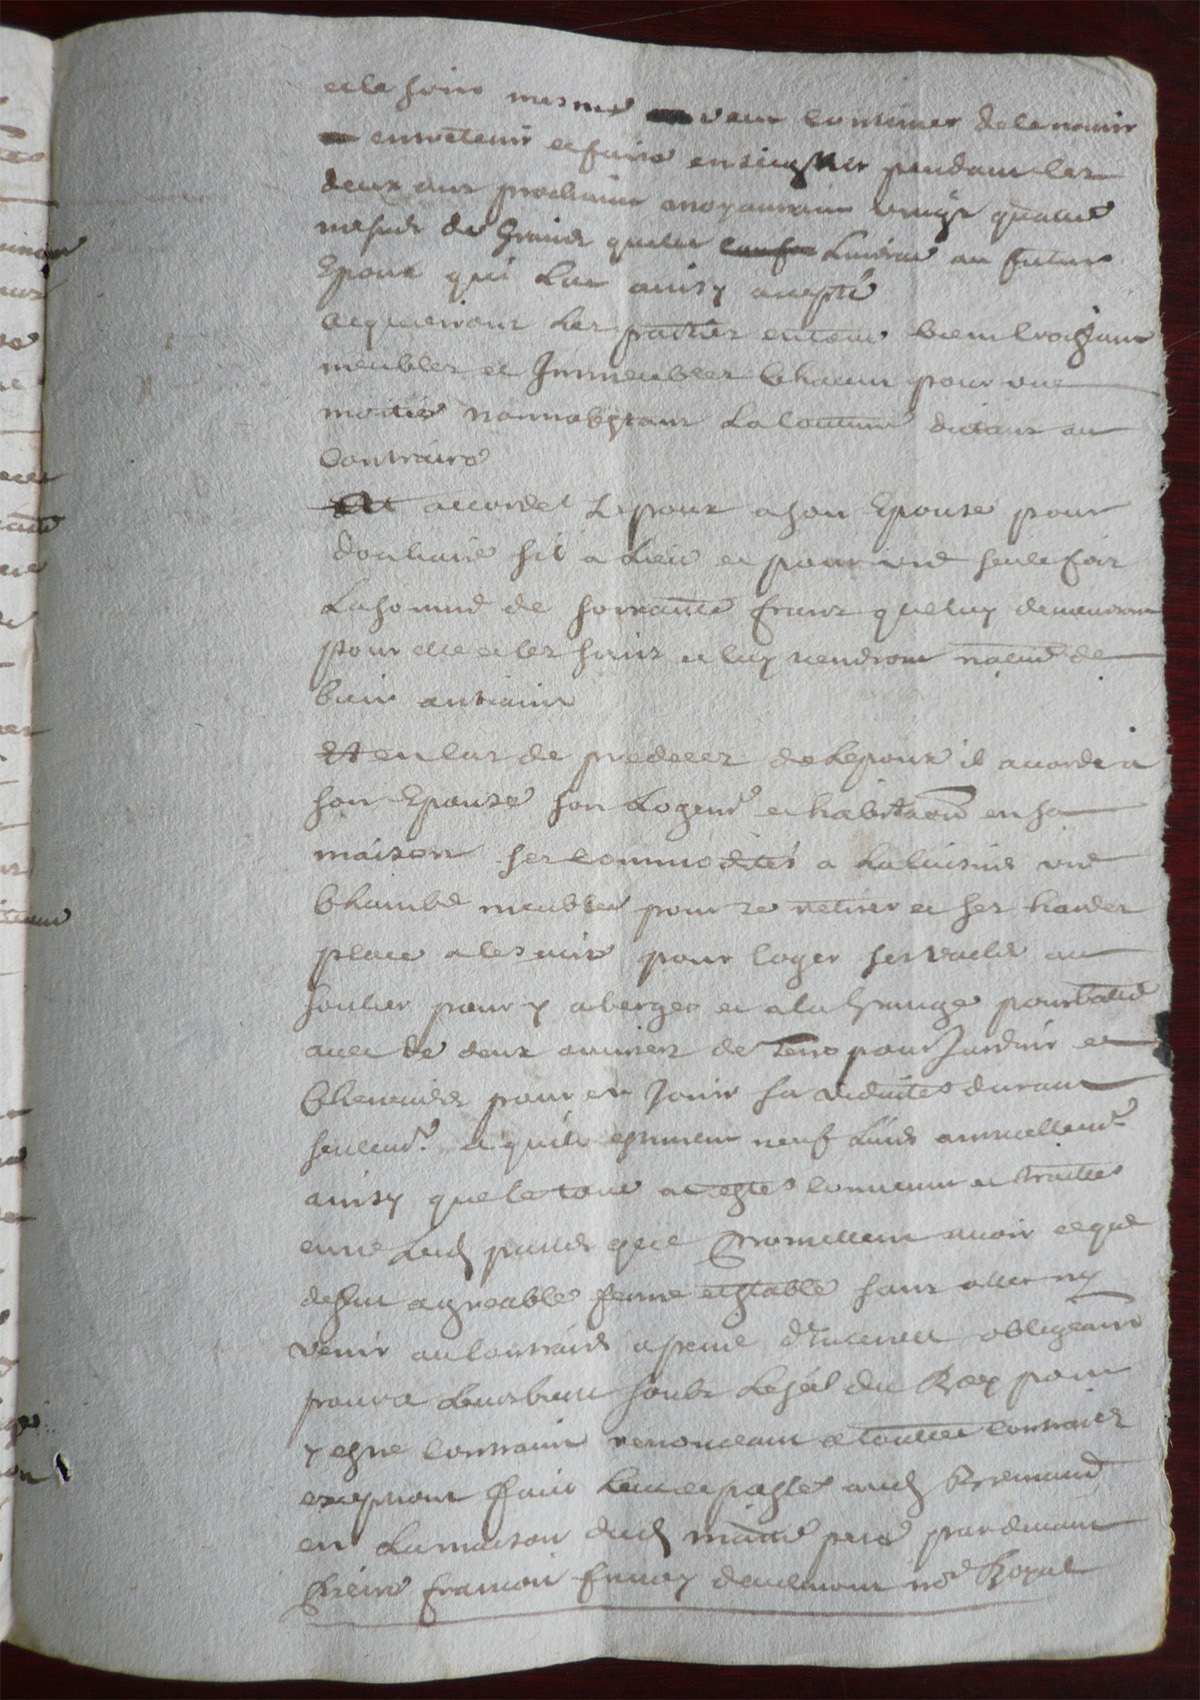 et le soin mesme veux continuer de le nourir
entretenir et faire enseigner pendant les
deux ans prochain moyennant vingt quatre
mesure de graine quelle au futur
Epoux qui l'at ainsy accepté
acquerront les parties en tout biens
meubles et Immeubles Chacun pour une
moitié nonnobstant La Coutume dictant au
Contraire
accordet L'Epoux a son Epouse pour
douhaire sil a Lieu et pour une seule fois
La somme de soixante frans que luy demeureront
pour elle et les siens et luy tiendront nature de
bien antiain
Et en cas de predecez de L'epoux il accorde a
son Epouse son Logemt et habitaon en sa
maison ses commodités a La Cuisine une
Chambre meublée pour se retirer et ses hardes
place a lescurie pour loger ses vache au
soulier pour y aberger et a la Grange pour battre
avec de deux ouvrees de Terre pour Jardin et
Cheneviere pour en Jouir sa viduites durant
seulemt. et quils estiment neuf Livre annuellemt
ainsy que le tout a estes convenu et traittes
entre Lesd parties qui Promettent avoir ce que
dessus agreable ferme et stable sans aller ny
venir au Contraire a peine d'Interest obligeant
pour ce Leurs biens soubs Le scel du Roy pour
y estre Contraint renonceant a toutes contraire
exeptions fait Leu et passé aud
en La maison dud pere pardevant
francois nore Royal